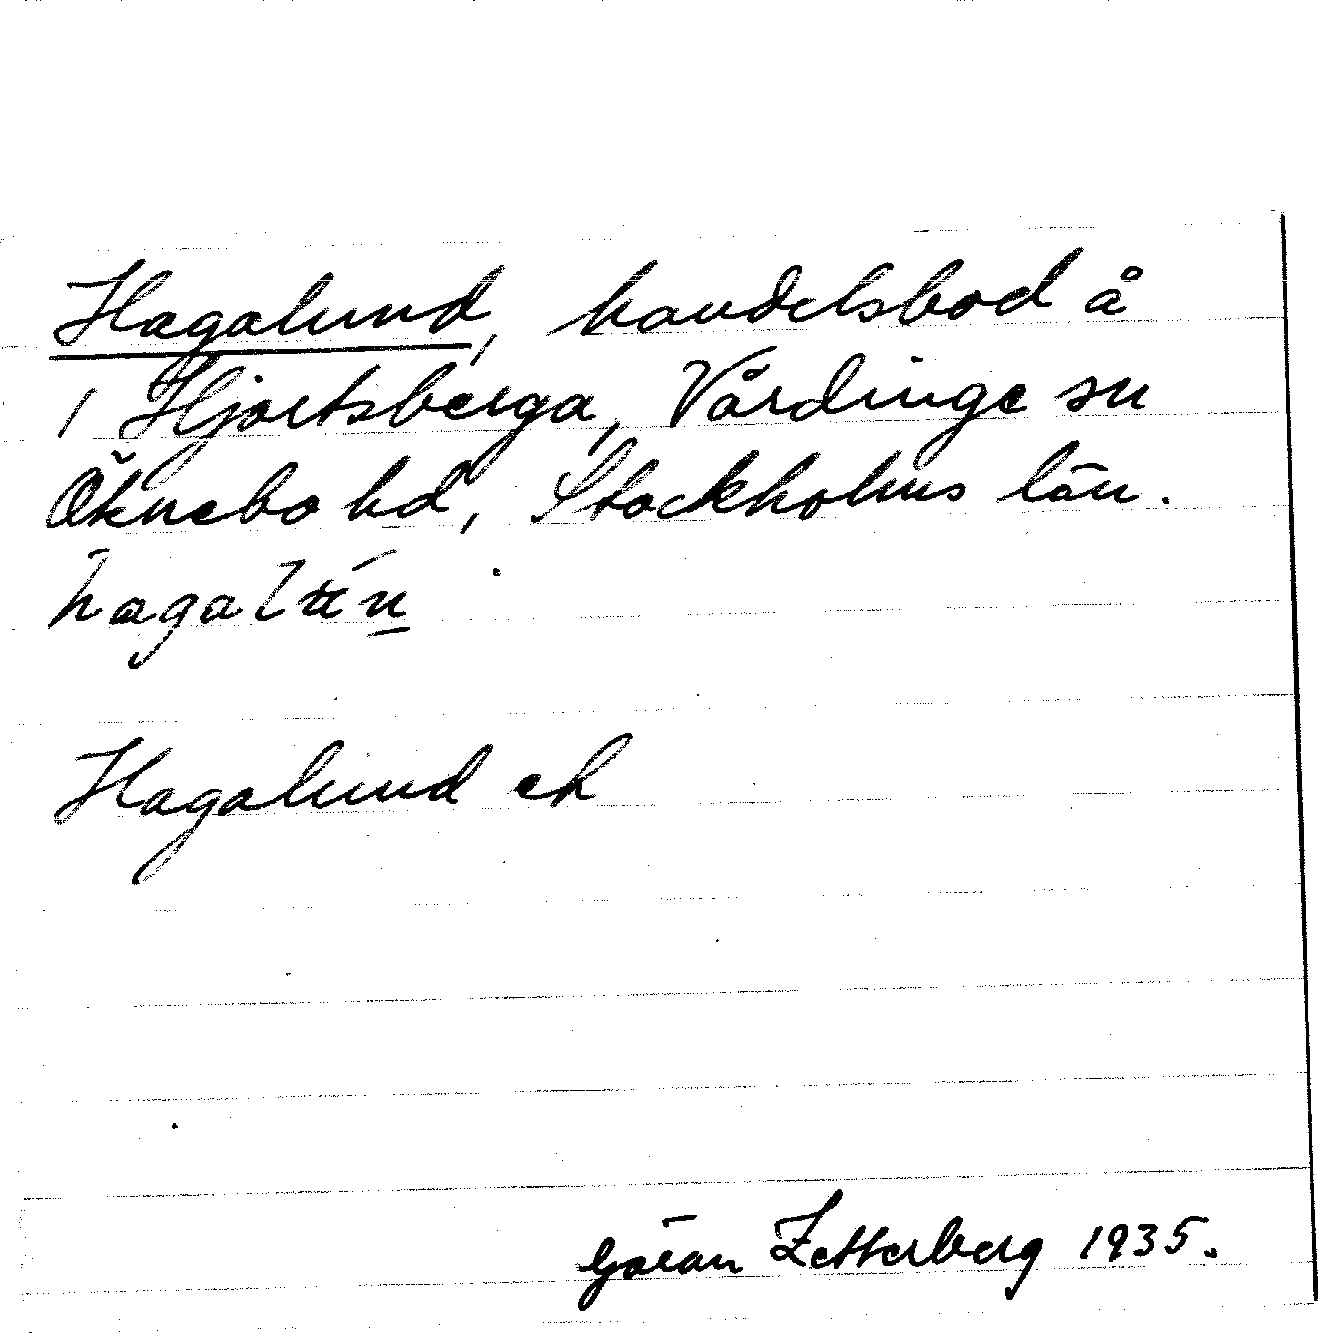 Hagalund, handelsbod å
1 Hjortsberga, Vårdinge sn
Öknebo hd, Stockholms län.
hagalun
Hagalund ek
Göran Zetterberg 1935.